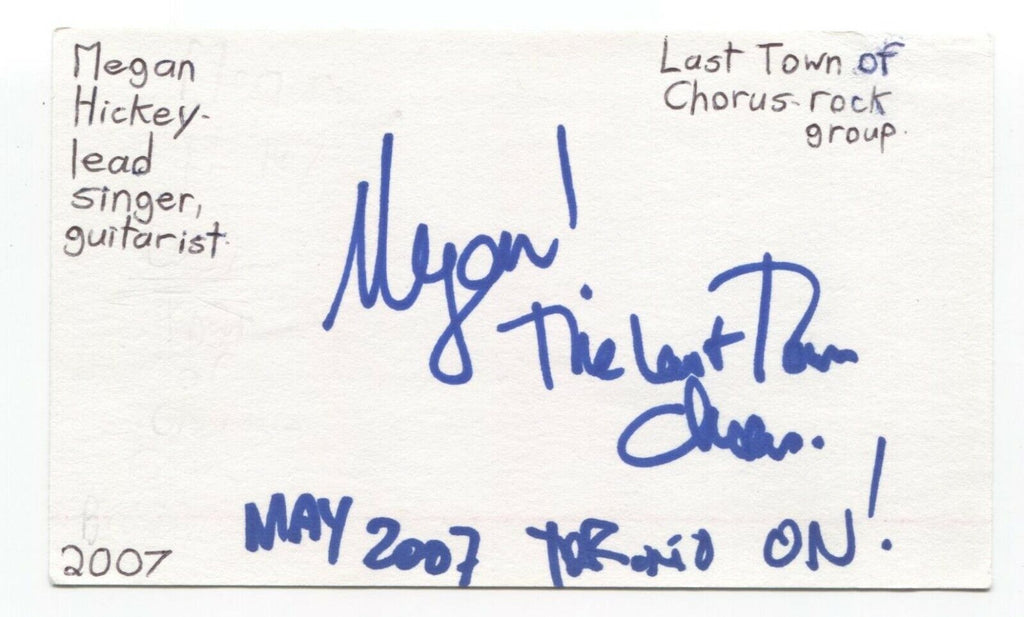 Megan
Hickey-
lead
singer,
guitarist.
Last Town of
Chorus-rock
group.
Megan!
The Last Town
Chorus.
MAY 2007 TORONTO ON!
2007